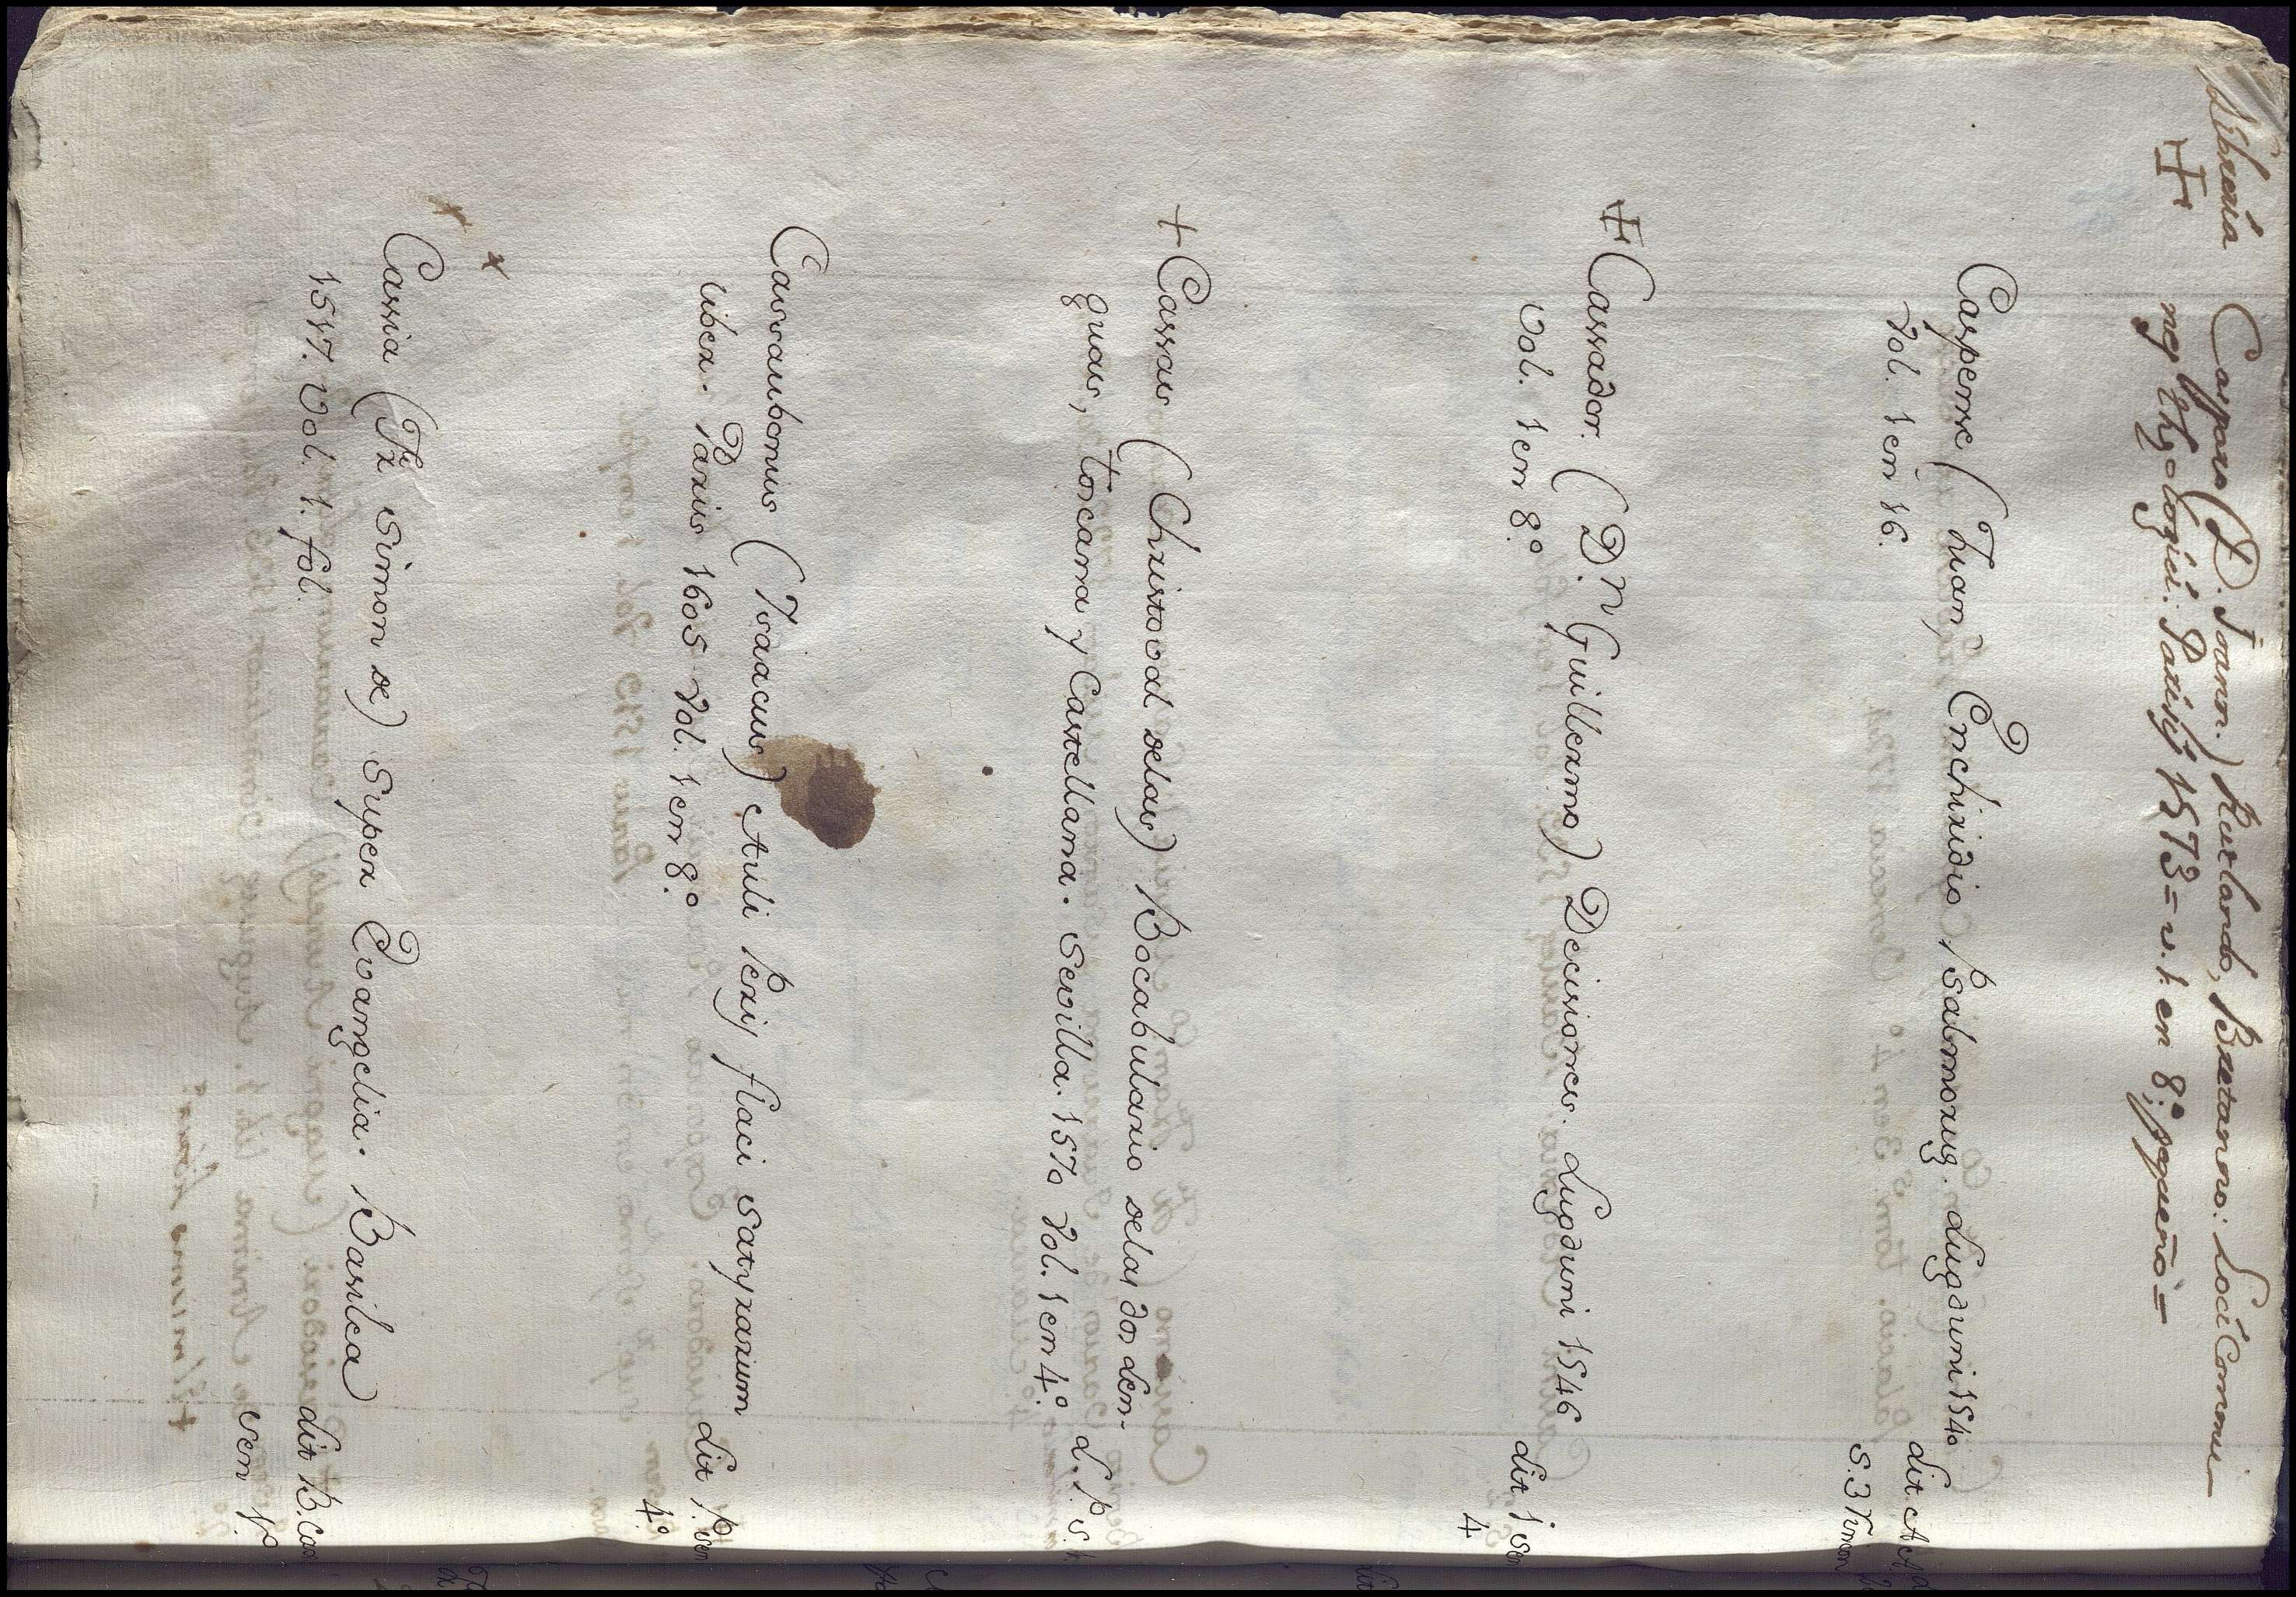 Libreria Caspara (D. Joann.) Rutlando, Bretanno: Loci Commu-
nes Thologici: Parisijs 1573 = v. 1. en 8.º, pequeño =
Caspense (Juan, Enchiridio Psalmorug. Lugduni 1540
Vol. 1 en 16.
dit. A
S. 3
Cassador. (D.n Guillermo) Decisiones. Lugduni 1546
Vol. 1 en 8.º
dit 1 sen
4
+ Cassas (Christoval delas) Bocabulario delas dos len-
guas, toscana y Castellana. Sevilla. 1570 Vol. 1 en 4.º
d. P. S.
Cassaubonus (Isaacus) Auli Persij flaci satyrarum
liber. Parius 1605 Vol. 1 en 8.º
dit P. sen
4.º
Cassia (Fr. Simon de) Super Evangelia. Basilea
1517. Vol. 1. fol.
dit B. Cas
sen